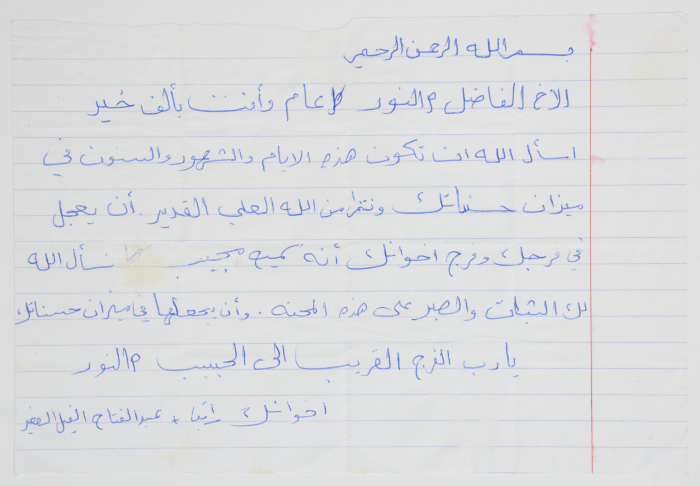 بسم الله الرحمن الرحيم
الاخ الفاضل م النور كل عام وأنت بألف خير
اسأل الله ان تكون هذه الايام والشهور والسنون في
ميزان حسناتك ونتمنا من الله العلي القدير أن يعجل
في فرجك وفرج اخوانك أنه سميع مجيب نسأل الله
لك الثبات والصبر على هذه المحنه . وأن يجعلها في ميزان حسناتك
يارب الفرج القريب الى الحبيب م النور
اخوانك + عبدالفتاح